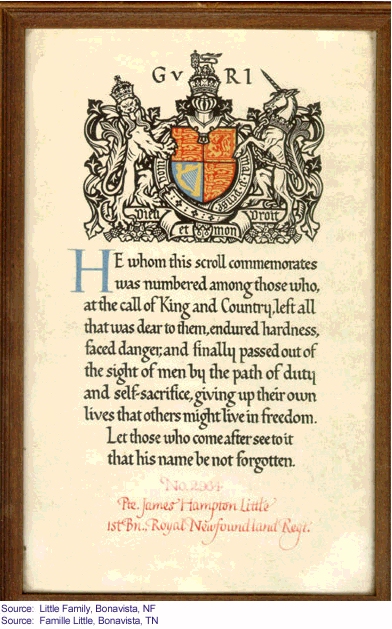 G V R I
Dieu et mon Droit
HE whom this scroll commemorates
was numbered among those who,
at the call of King and Country, left all
that was dear to them, endured hardness,
faced danger, and finally passed out of
the sight of men by the path of duty
and self-sacrifice, giving up their own
lives that others might live in freedom.
Let those who come after see to it
that his name be not forgotten.
Pte. James Hampton Little
1st Bn., Royal Newfoundland Regt.
Source: Little Family, Bonavista, NF
Source: Famille Little, Bonavista, TN